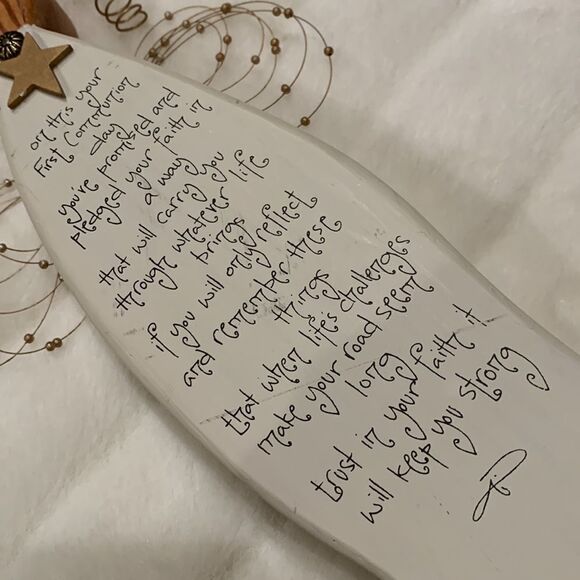 on this your
First Communion
day
you've promised and
pledged your faith in
a way
that will carry you
through whatever life
brings
if you will only reflect
and remember these
things
that when life's challenges
make your road seem
long
trust in your faith it
will keep you strong